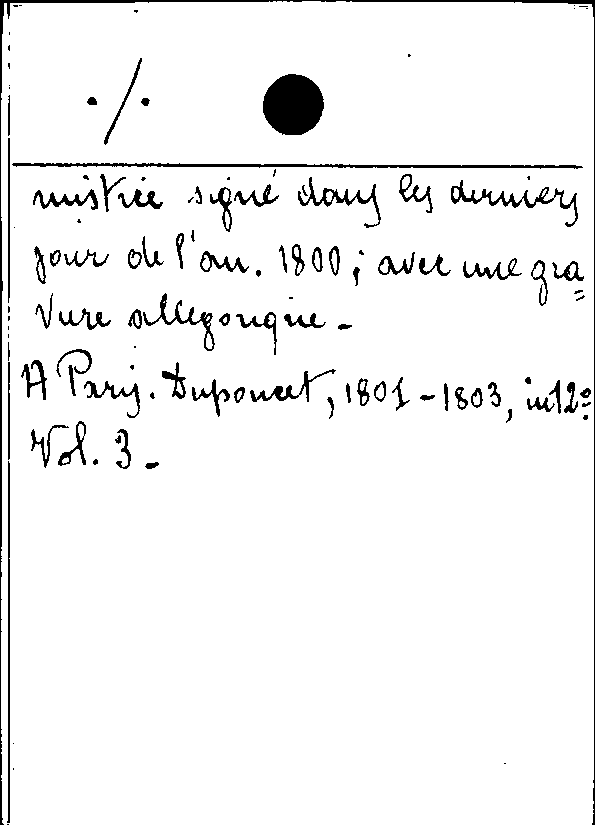 ./.
mistice signé dans les derniers
jour de l'an. 1800; avec une gra=
vure allegorique.-
A Paris. Duponcet, 1801-1803, in 12º.
Vol. 3.-